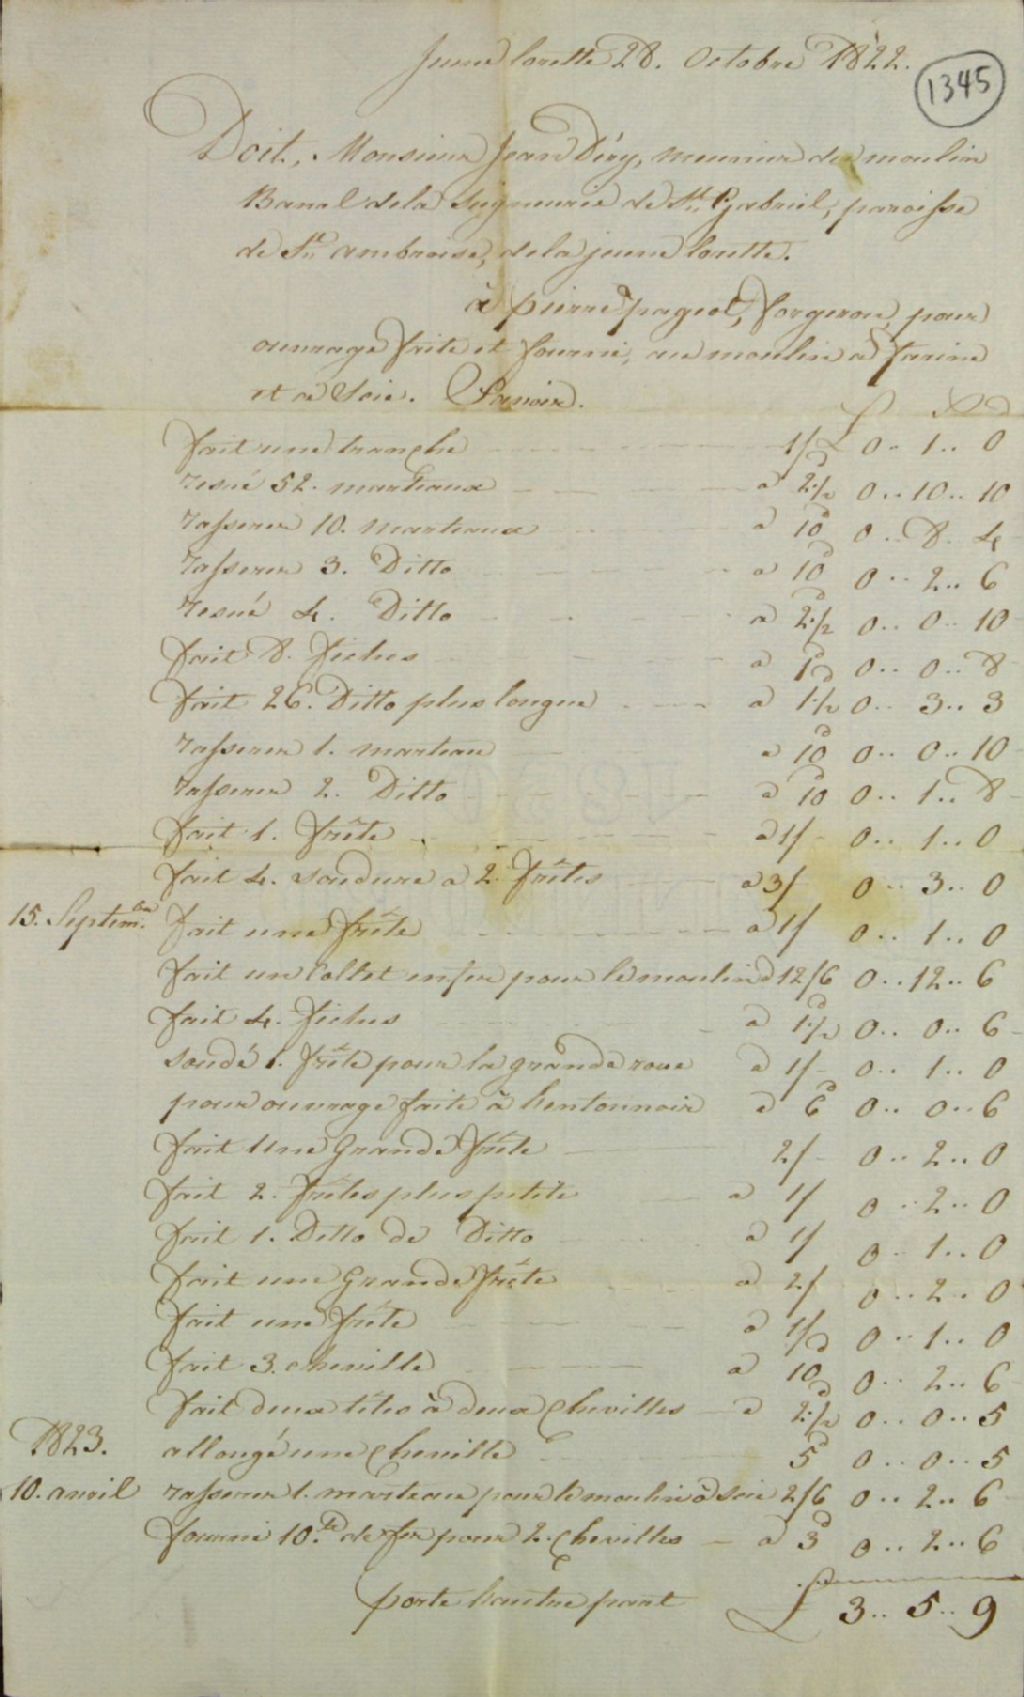 Jeune lorette 28. Octobre 1822.
1345
Doit, Monsieur Jean Déry, meunier du moulin
Banal dela Seigneurie de St. Gabriel, paroisse
de St. ambroise, dela jeune lorette.
à pierre pageot, forgeron, pour
ouvrage faite et fourni, au moulin a farine
et a Scie. Savoir.
£ S D
fait une tranche 1/ 0.. 1.. 0
resué 52. marteaux a 2½d 0.. 10.. 10
rasserer 10. marteaux a 10d 0.. 8. 4
rasserer 3. Ditto a 10d 0.. 2.. 6
resué 4. Ditto a 2½d 0.. 0.. 10
fait 8. fiches a 1d 0.. 0.. 8
fait 26. Ditto plus longue a 1½d 0.. 3.. 3
rasserer 1. marteau a 10d 0.. 0.. 10
rasserer 2. Ditto a 10d 0.. 1.. 8
fait 1. frète a 1/ 0.. 1.. 0
fait 4. soudure a 2. frètes a 3/ 0.. 3.. 0
15. Septembre. fait une frète a 1/ 0.. 1.. 0
fait un Collet enfer pour le moulin a 12/6 0.. 12.. 6
fait 4. fiches a 1½d 0.. 0.. 6
soudé 1. frète pour la grande roue a 1/ 0.. 1.. 0
pour ouvrage faite à lentonnoir a 6d 0.. 0.. 6
fait Une Grande frète 2/ 0.. 2.. 0
fait 2. frètes plus petite a 1/ 0.. 2.. 0
fait 1. Ditto de Ditto a 1/ 0.. 1.. 0
fait une Grande frète a 2/ 0.. 2.. 0
fait une frète a 1/ 0.. 1.. 0
fait 3. cheville a 10d 0.. 2.. 6
fait deux têtes à deux Chevilles a 2½d 0.. 0.. 5
1823. allongé une Cheville 5d 0.. 0.. 5
10. avril rasserer 1. marteau pour le moulin à scie 2/6 0.. 2.. 6
fourni 10. de fer pour 2. Chevilles a 3d 0.. 2.. 6
porté lautre part £ 3.. 5.. 9